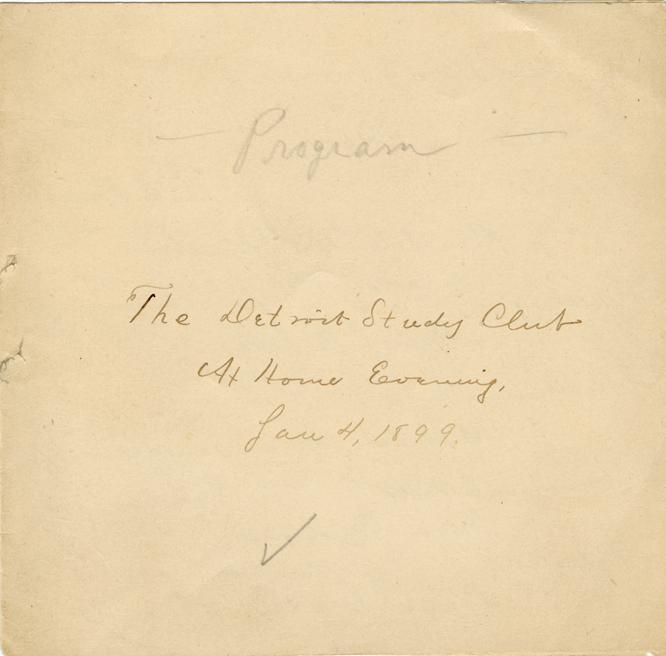 — Program —
The Detroit Study Club
At Home Evening,
Jan 4, 1899.
✓